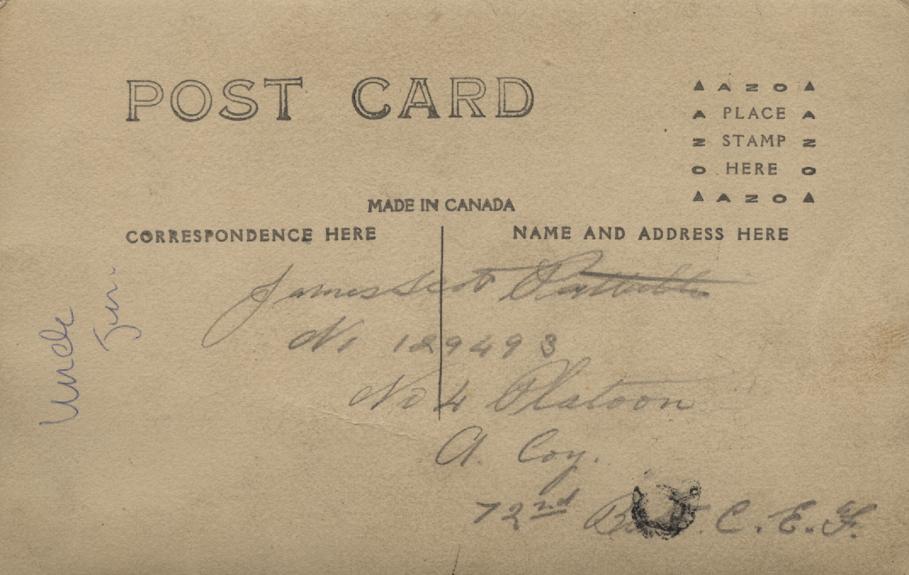 POST CARD
▲ A Z O ▲
A PLACE A
Z STAMP Z
O HERE O
▲ A Z O ▲
MADE IN CANADA
CORRESPONDENCE HERE
NAME AND ADDRESS HERE
James Scott
No 129493
No 4 Platoon
A. Coy.
72nd C. E. F.
Uncle
Jim.